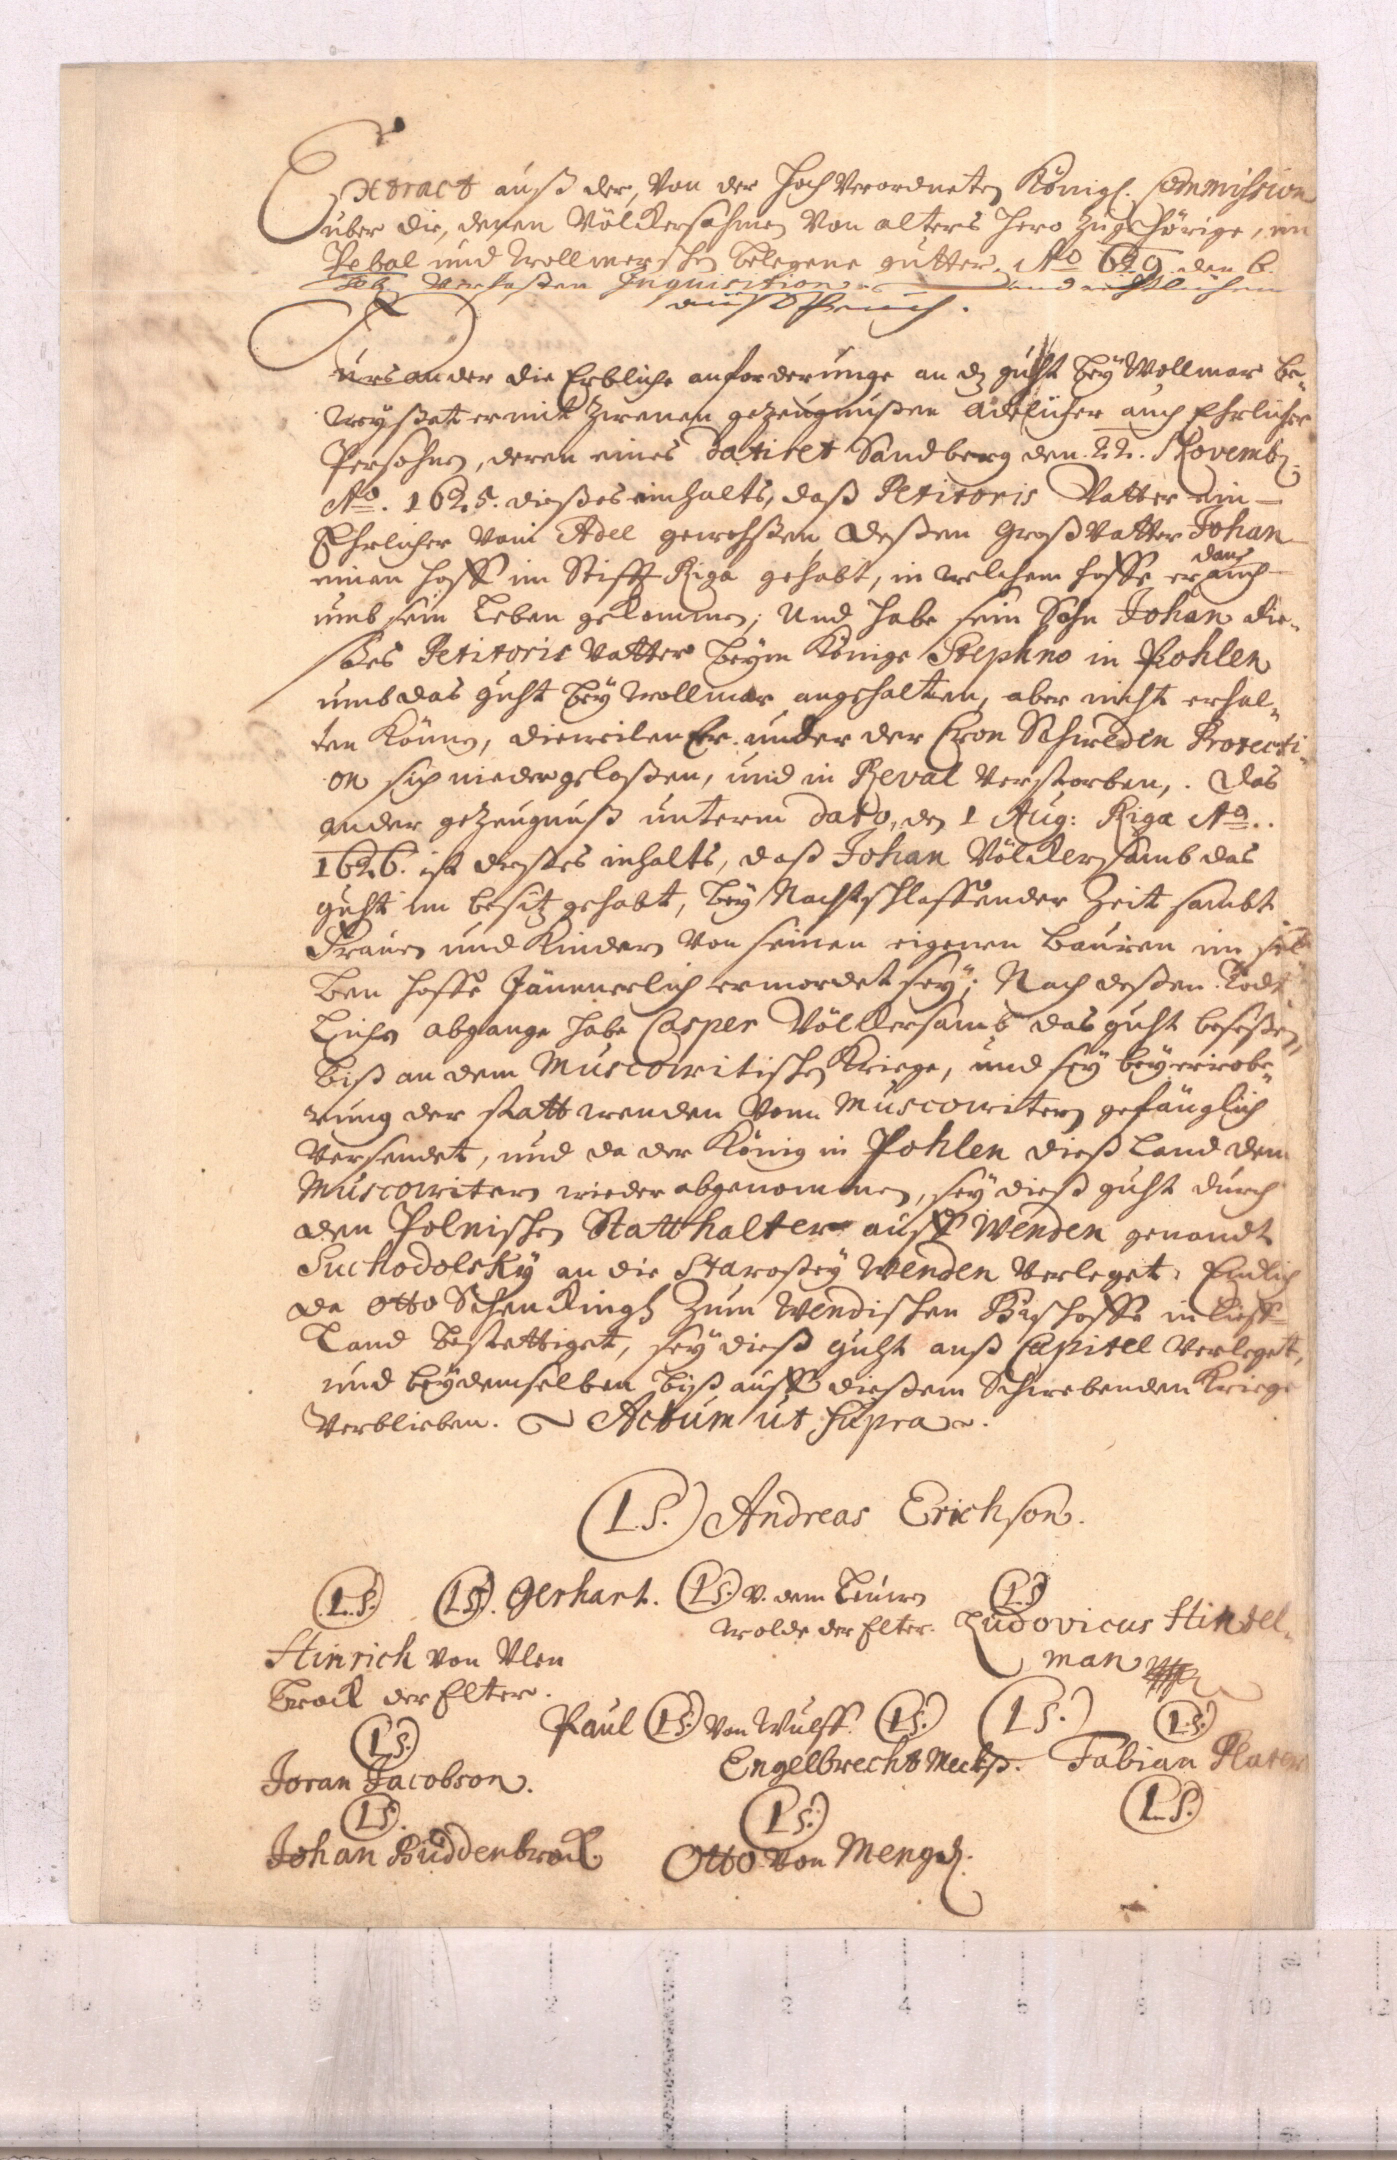 Extract auß der, von der Hoch Verordneten Königl. Commission
über die, denen Völckersahmen von alters hero zugehörige, im
Pebal und Wollmerschen belegene gütter. Ao 629. den 6.
Feb. verfaßten Inquisition und endtlichem
außspruch.
ursander die Erbliche anforderunge an dz guht bey Wollmar be-
weyßet er mit zweenen gezeugnußen Adelicher auch Ehrlicher
Persohnen, deren eines datiret Sandberg den 22. Novemb.
Ao. 1625. dießes einhalts, daß Petitoris Vatter ein
Ehrlicher vom Adel gewehßen, deßen Großvatter Johan
einen hoff im Stifft Riga gehabt, in welchem hoffe er dan auch
umb sein Leben gekommen; Und habe sein Sohn Johan die-
ßes Petitoris Vatter beym Könige Stephno in Pohlen
umb das guht bey Wollmar angehalten, aber nicht erhal-
ten können, dieweilen Er under der Cron Schweden Protecti-
on sich niedergelaßen, und in Reval verstorben. Das
ander gezeugnuß unterm dato, den 1 Aug: Riga Ao.
1626. ist dießes inhalts, daß Johan Völckersamb das
guht im besitz gehabt, bey Nachtschlaffender Zeit sambt
Frauen und Kindern von seinen eigenen Bauren im sel-
ben hoffe Jämmerlich ermordet sey; Nach deßen Todt-
lichen abgange habe Casper Völckersamb das guht beseßen,
biß an dem Muscowitischen Kriege, und sey bey erobe-
rung der statt Wenden vom Muscowitern gefänglich
versendet, und da der König in Pohlen dieß Land dem
Muscowitern wieder abgenommen, sey dieß guht durch
den Polnischen Statthalter auff Wenden genandt
Suchodolsky an die Starostey Wenden verleget, Endlich
da Otto Schenkingh zum Wendischen Bischoffe in Lieff-
Land bestettiget, sey dieß guht anß Capitel verleget,
und bey demselben biß auff dießem Schwebenden Kriege
verblieben. Actum ut supra.
(LS.) Andreas Erichson.
(L.S.) (LS). Gerhart. (LS.) v. dem Leuwen (LS)
wolde der Elter. Ludovicus Hintel-
Hinrich von Ulen man
Brock der Elter.
Paul (LS.) von Wulff. (LS.) (LS.) (L.S.)
(LS.) Engelbrecht Mecks. Fabian Plater
Joran Jacobson. (LS.)
(LS). (LS.)
Johan Buddenbrock. Otto von Mengd.